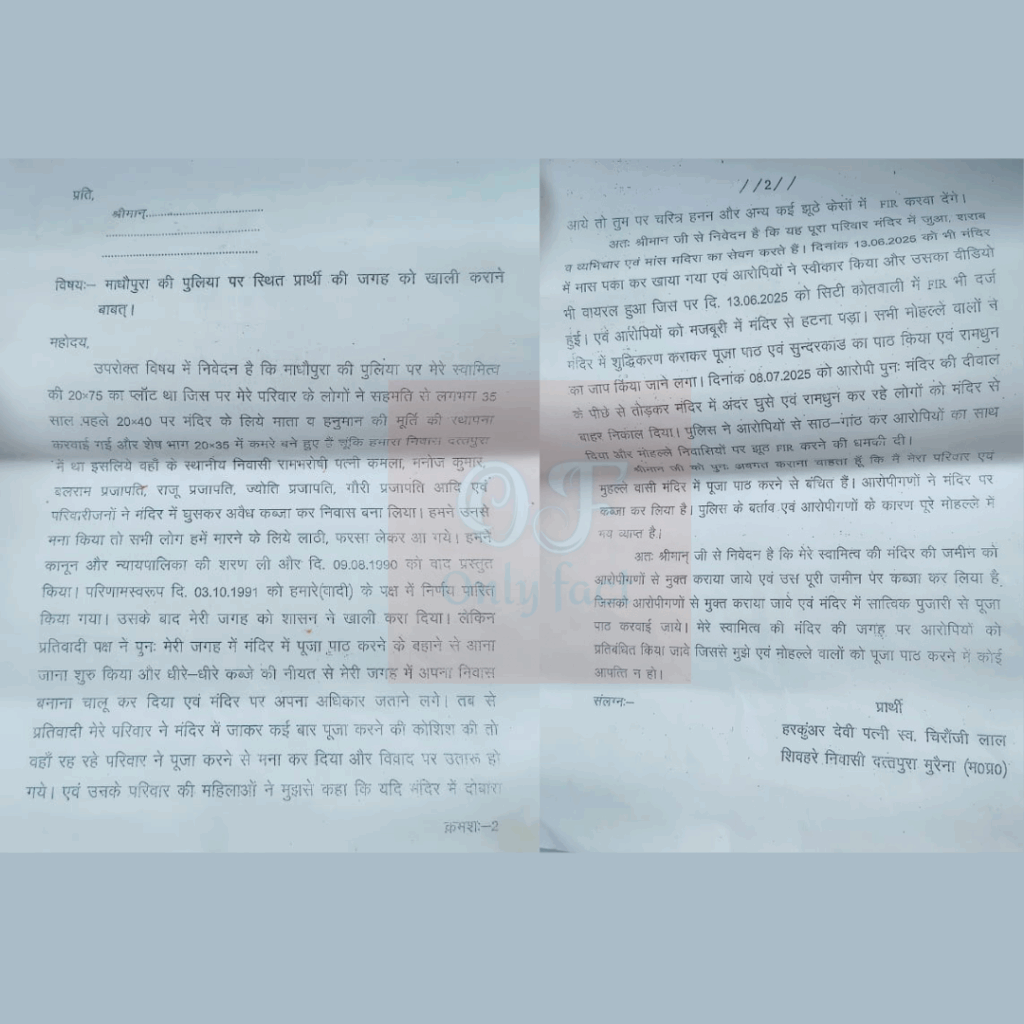 प्रति,
श्रीमान्..............................
........................................
........................................
विषयः– माधौपुरा की पुलिया पर स्थित प्रार्थी की जगह को खाली कराने
बाबत्।
महोदय,
उपरोक्त विषय में निवेदन है कि माधौपुरा की पुलिया पर मेरे स्वामित्व
की 20×75 का प्लॉट था जिस पर मेरे परिवार के लोगों ने सहमति से लगभग 35
साल पहले 20×40 पर मंदिर के लिये माता व हनुमान की मूर्ति की स्थापना
करवाई गई और शेष भाग 20×35 में कमरे बने हुए है चूंकि हमारा निवास दत्तपुरा
में था इसलिये वहाँ के स्थानीय निवासी रामभरोषी पत्नी कमला, मनोज कुमार,
बलराम प्रजापति, राजू प्रजापति, ज्योति प्रजापति, गौरी प्रजापति आदि एवं
परिवारीजनों ने मंदिर में घुसकर अवैध कब्जा कर निवास बना लिया। हमने उनसे
मना किया तो सभी लोग हमें मारने के लिये लाठी, फरसा लेकर आ गये। हमने
कानून और न्यायपालिका की शरण ली और दि. 09.08.1990 को वाद प्रस्तुत
किया। परिणामस्वरूप दि. 03.10.1991 को हमारे(वादी) के पक्ष में निर्णय पारित
किया गया। उसके बाद मेरी जगह को शासन ने खाली करा दिया। लेकिन
प्रतिवादी पक्ष ने पुनः मेरी जगह में मंदिर में पूजा पाठ करने के बहाने से आना
जाना शुरु किया और धीरे–धीरे कब्जे की नीयत से मेरी जगह में अपना निवास
बनाना चालू कर दिया एवं मंदिर पर अपना अधिकार जताने लगे। तब से
प्रतिवादी मेरे परिवार ने मंदिर में जाकर कई बार पूजा करने की कोशिश की तो
वहाँ रह रहे परिवार ने पूजा करने से मना कर दिया और विवाद पर उतारू हो
गये। एवं उनके परिवार की महिलाओं ने मुझसे कहा कि यदि मंदिर में दोबारा
क्रमशः–2
//2//
आये तो तुम पर चरित्र हनन और अन्य कई झूठे केसों में FIR करवा देंगे।
अतः श्रीमान जी से निवेदन है कि यह पूरा परिवार मंदिर में जुआ, शराब
व व्यभिचार एवं मांस मदिरा का सेवन करते हैं। दिनांक 13.06.2025 को भी मंदिर
में मास पका कर खाया गया एवं आरोपियों ने स्वीकार किया और उसका वीडियो
भी वायरल हुआ जिस पर दि. 13.06.2025 को सिटी कोतवाली में FIR भी दर्ज
हुई। एवं आरोपियों को मजबूरी में मंदिर से हटना पड़ा। सभी मोहल्ले वालों ने
मंदिर में शुद्धिकरण कराकर पूजा पाठ एवं सुन्दरकांड का पाठ किया एवं रामधुन
का जाप किया जाने लगा। दिनांक 08.07.2025 को आरोपी पुनः मंदिर की दीवाल
के पीछे से तोड़कर मंदिर में अंदर घुसे एवं रामधुन कर रहे लोगों को मंदिर से
बाहर निकाल दिया। पुलिस ने आरोपियों से साठ–गांठ कर आरोपियों का साथ
दिया और मोहल्ले निवाशियों पर झूठ FIR करने की धमकी दी।
श्रीमान जी को पुनः अवगत कराना चाहता हूँ कि मै मेरा परिवार एवं
मुहल्ले वासी मंदिर में पूजा पाठ करने से बंचित हैं। आरोपीगणों ने मंदिर पर
कब्जा कर लिया है। पुलिस के बर्ताव एवं आरोपीगणों के कारण पूरे मोहल्ले में
भय व्याप्त है।
अतः श्रीमान् जी से निवेदन है कि मेरे स्वामित्व की मंदिर की जमीन को
आरोपीगणों से मुक्त कराया जाये एवं उस पूरी जमीन पर कब्जा कर लिया है
जिसको आरोपीगणों से मुक्त कराया जावे एवं मंदिर में सात्विक पुजारी से पूजा
पाठ करवाई जाये। मेरे स्वामित्व की मंदिर की जगह पर आरोपियों को
प्रतिबंधित किया जावे जिससे मुझे एवं मोहल्ले वालों को पूजा पाठ करने में कोई
आपत्ति न हो।
संलग्नः–
प्रार्थी
हरकुंअर देवी पत्नी स्व. चिरौंजी लाल
शिवहरे निवासी दत्तपुरा मुरैना (म०प्र०)
OF
Only fact